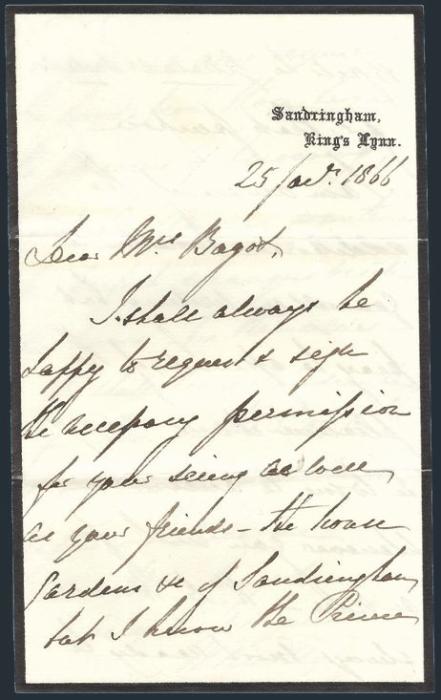 Sandringham,
King's Lynn.
25 Jany. 1866
Dear Mrs Bagot,
I shall always be
happy to request & sign
the necessary permission
for your seeing as well
as your friends - the house
Gardens &c of Sandringham
but I know the Prince